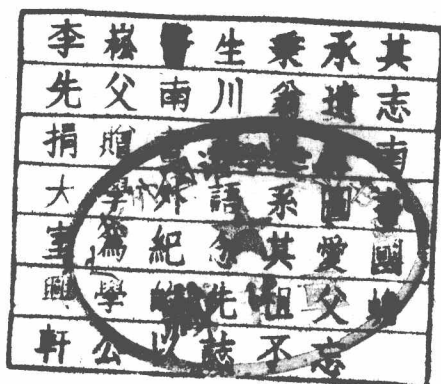 李崧醫生秉承其
先父南川翁遺志
捐贈南
大學外語系圖書
室爲紀念其愛國
興學先祖父
軒公以誌不忘